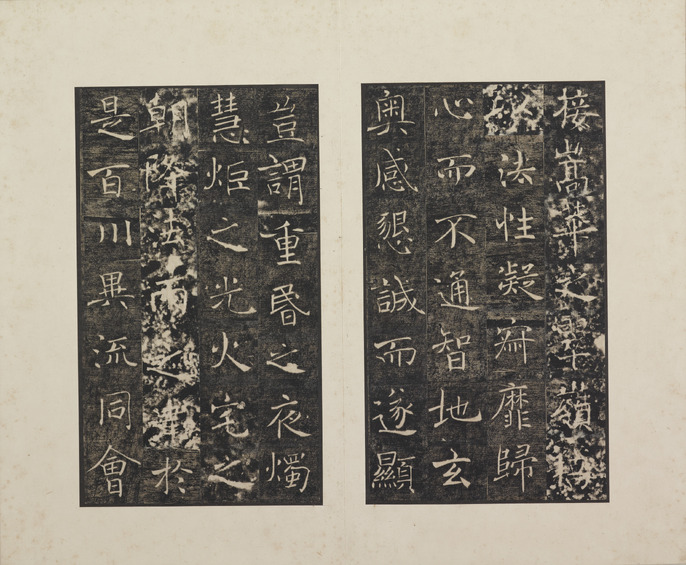 接嵩華之翠嶺
法性凝寂靡歸
心而不通智地玄
奧感懇誠而遂顯
豈謂重昬之夜燭
慧炬之光火宅之
朝降法雨之澤於
是百川異流同會